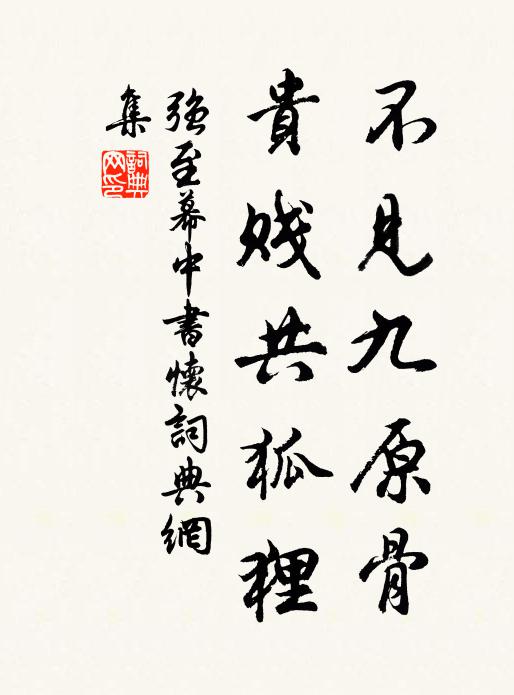 不見九原骨
貴賤共狐狸
強至幕中書懷詞典網
集
詞典
网印